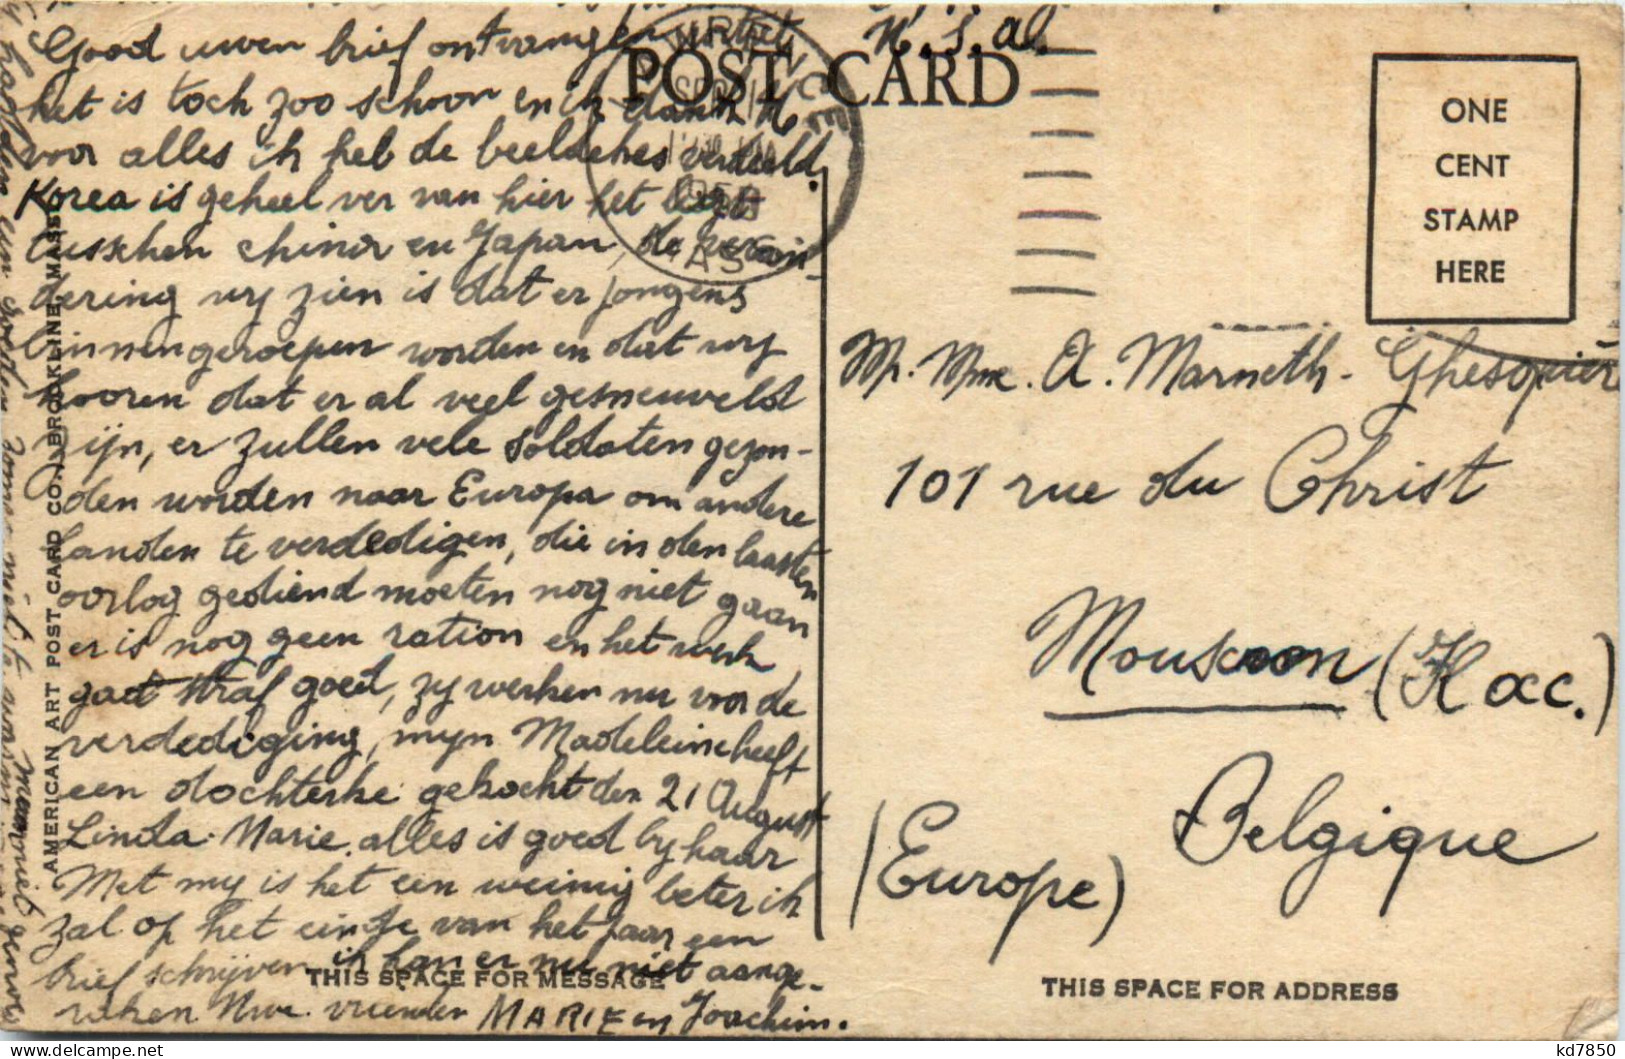 Good uwen brief ontvangen
het is toch zoo schoon en ik dank U
voor alles ik heb de beeldekes verdeeld.
Korea is geheel ver van hier het ligt
tusschen china en Japan, de veran-
dering wy zien is dat er jongens
binnengeroepen worden en dat wy
hooren dat er al veel gesneuveld
zijn, er zullen vele soldaten gezon-
den worden naar Europa om andere
landen te verdedigen, die in den laasten
oorlog gediend moeten nog niet gaan
er is nog geen ration en het werk
gaat straf goed, zy werken nu voor de
verdediging, myn Madeleine heeft
een dochterke gekocht den 21 August
Linda-Marie. alles is goed by haar
Met my is het een weinig beter ik
zal op het eindje van het jaar een
brief schrijven ik kan er nu niet aange-
raken Uwe vrienden MARIE en Joachim.
AMERICAN ART POST CARD CO., BROOKLINE, MASS.
THIS SPACE FOR MESSAGE
POST CARD
U.S.A.
ONE
CENT
STAMP
HERE
Mr. Mme. A. Marneth-Ghesquier
101 rue du Christ
Mouscron (H acc.)
Belgique
(Europe)
THIS SPACE FOR ADDRESS
kd7850